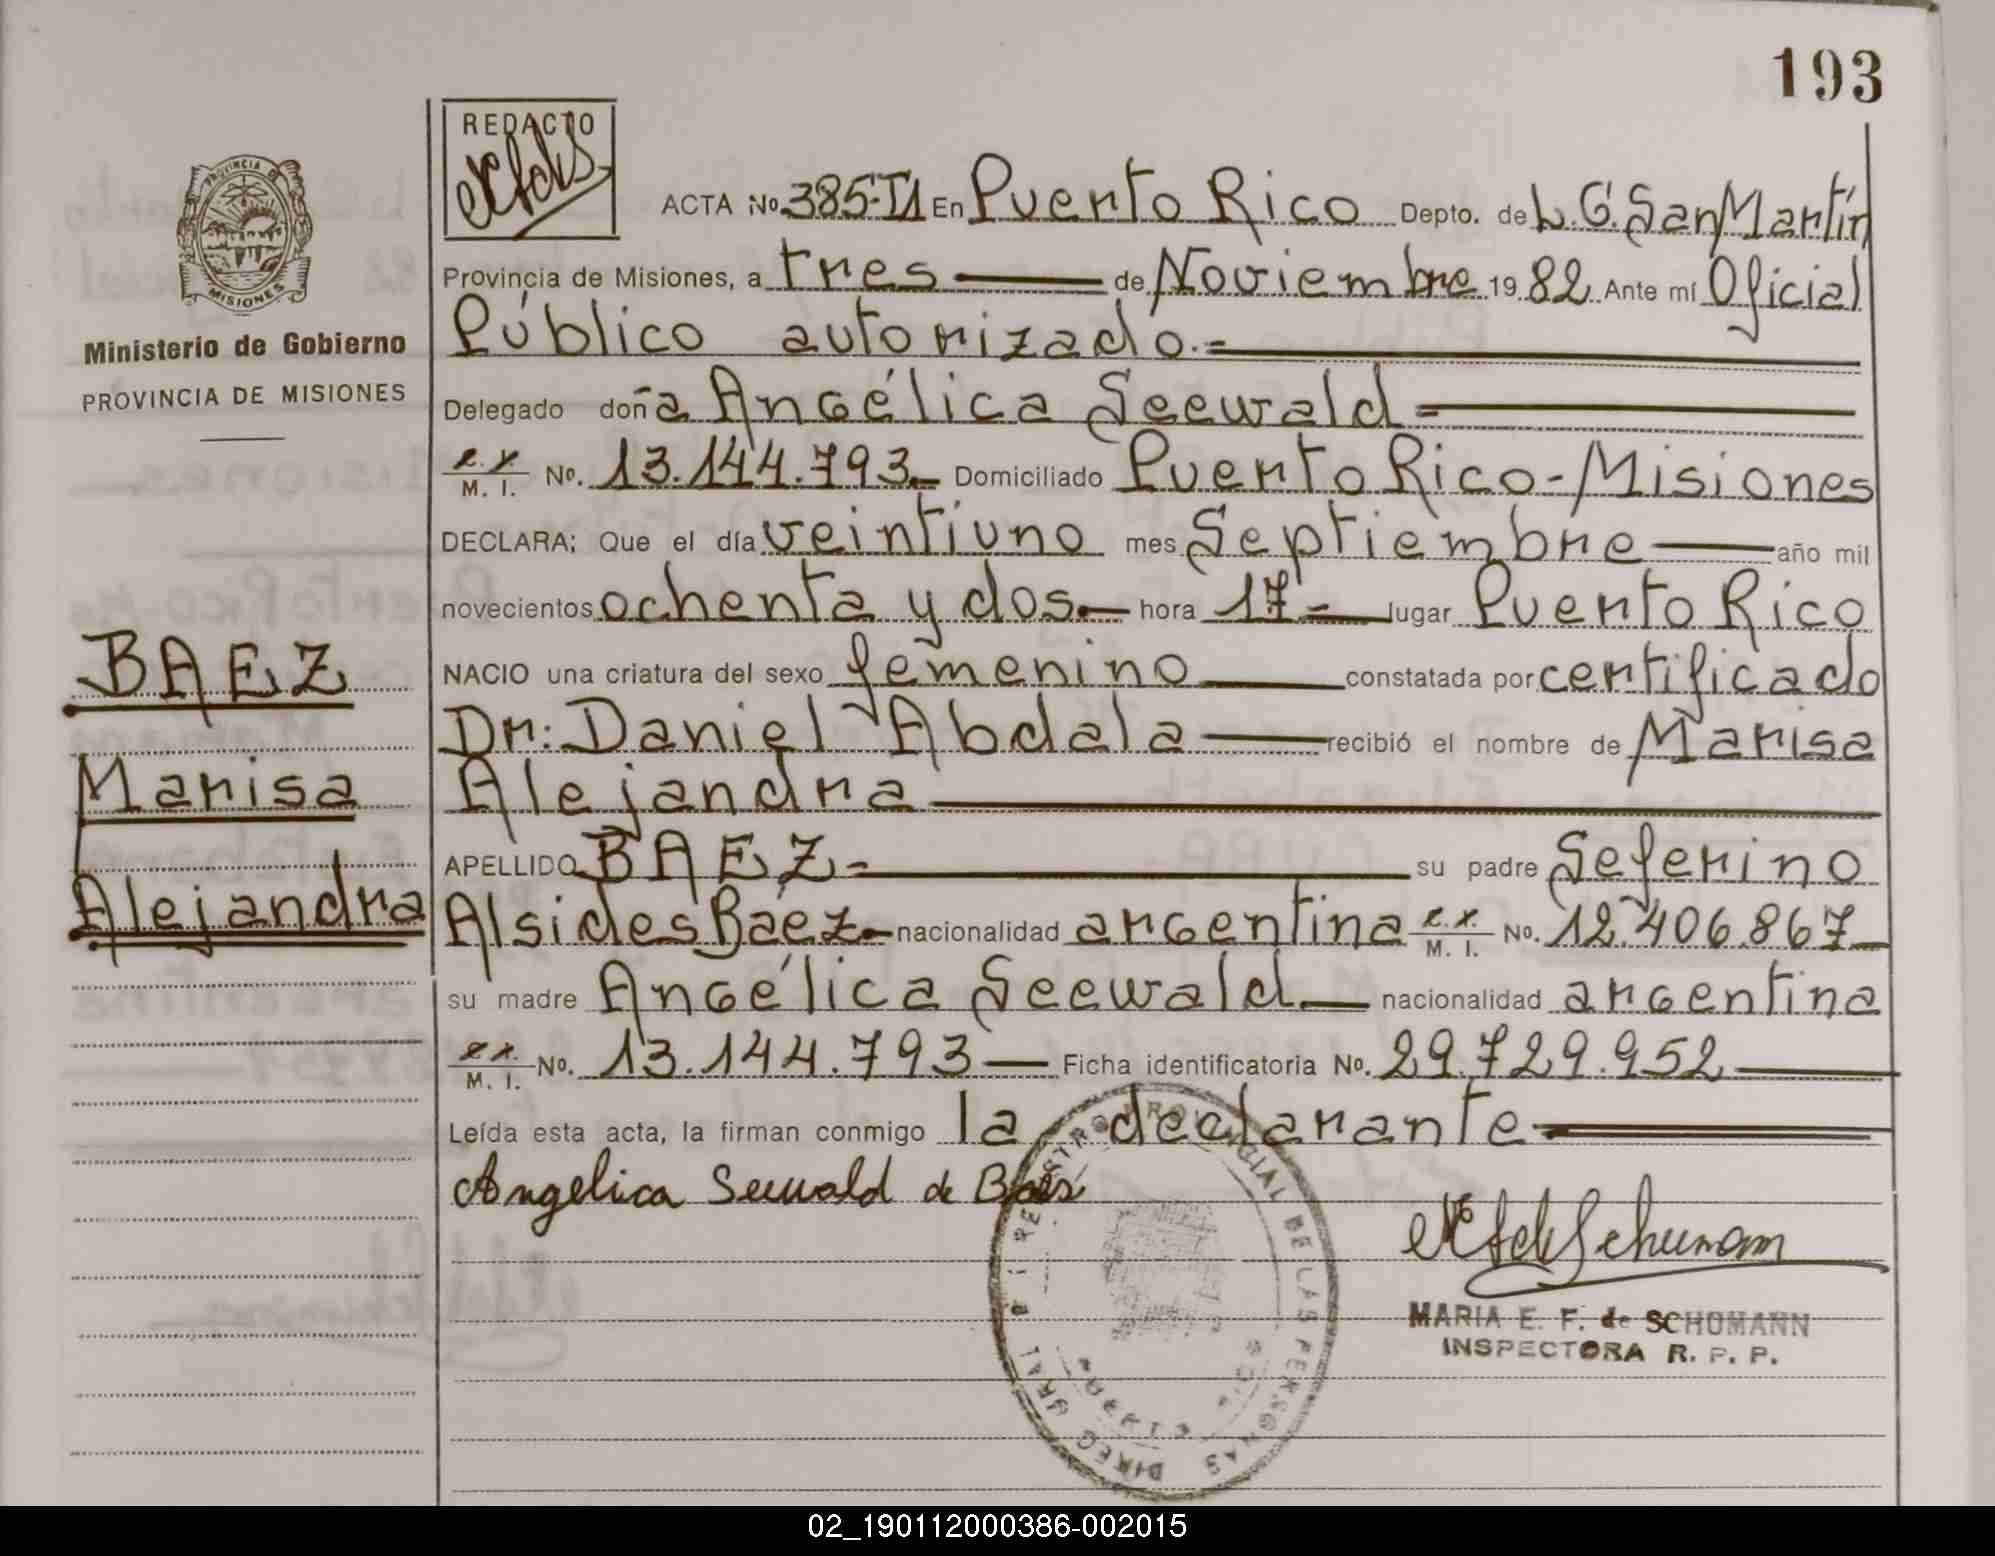 193
REDACTO
PROVINCIA DE
MISIONES
Ministerio de Gobierno
PROVINCIA DE MISIONES
ACTA No. 385-T1 En Puerto Rico Depto. de L.G. San Martín
Provincia de Misiones, a tres de Noviembre 1982 Ante mí Oficial
Público autorizado.=
Delegado doña Angélica Seewald=
M. I. No. 13.144.793 Domiciliado Puerto Rico-Misiones
DECLARA; Que el día veintiuno mes Septiembre año mil
novecientos ochenta y dos.- hora 17- lugar Puerto Rico
NACIO una criatura del sexo femenino constatada por certificado
Dr: Daniel Abdala recibió el nombre de Marisa
Alejandra
APELLIDO BAEZ- su padre Seferino
Alsides Baéz- nacionalidad argentina M. I. No. 12.406.867
su madre Angélica Seewald nacionalidad argentina
M. I. No. 13.144.793 Ficha identificatoria No. 29.729.952
Leída esta acta, la firman conmigo la declarante
Angelica Seewald de Baés
BAEZ
Marisa
Alejandra
REGISTRO PROVINCIAL DE LAS PERSONAS
de Schumann
MARIA E. F. de SCHUMANN
INSPECTORA R. P. P.
02_190112000386-002015